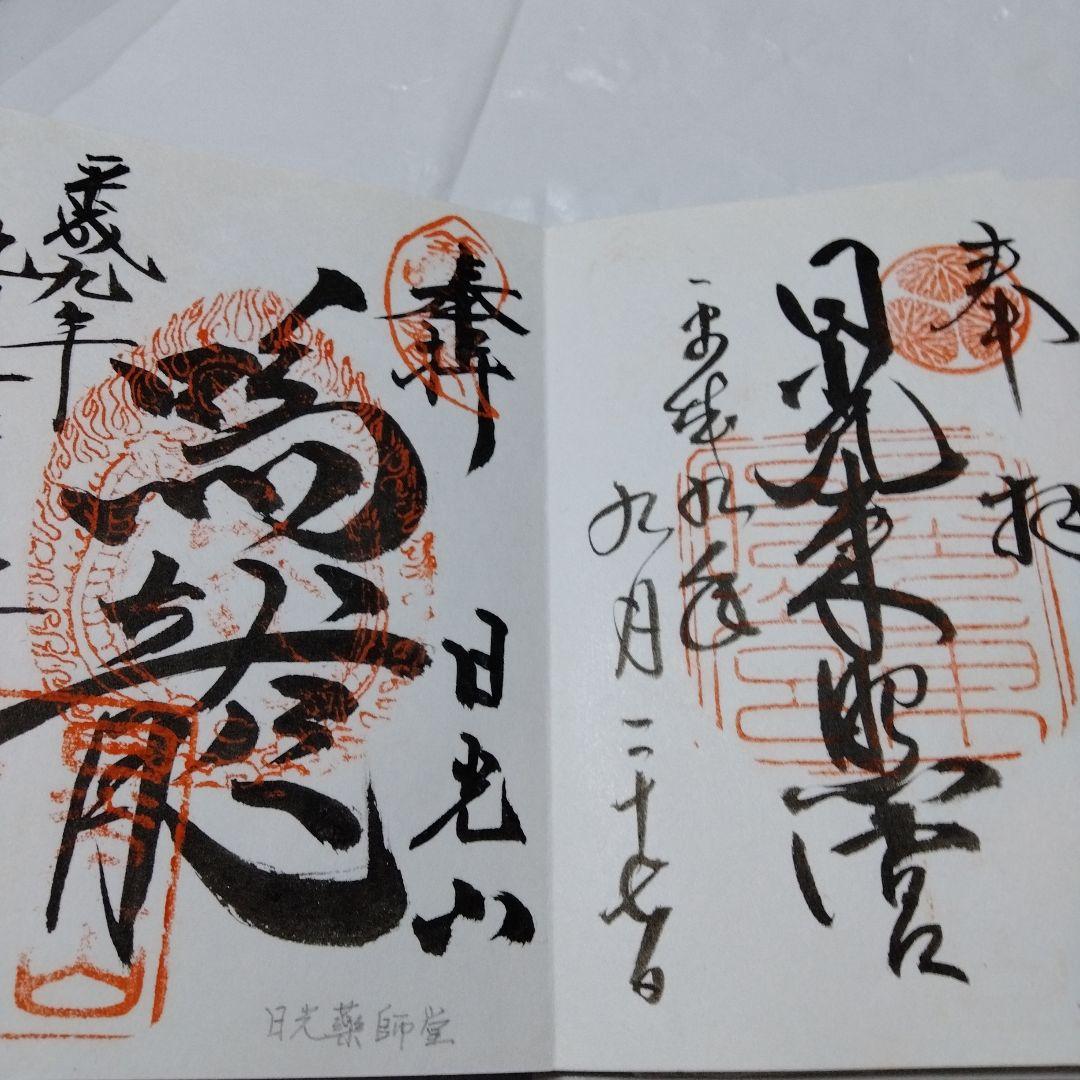 奉拝
日光東照宮
平成九年
九月二十七日
奉拝
日光山
鳴龍
平成九年
日光薬師堂